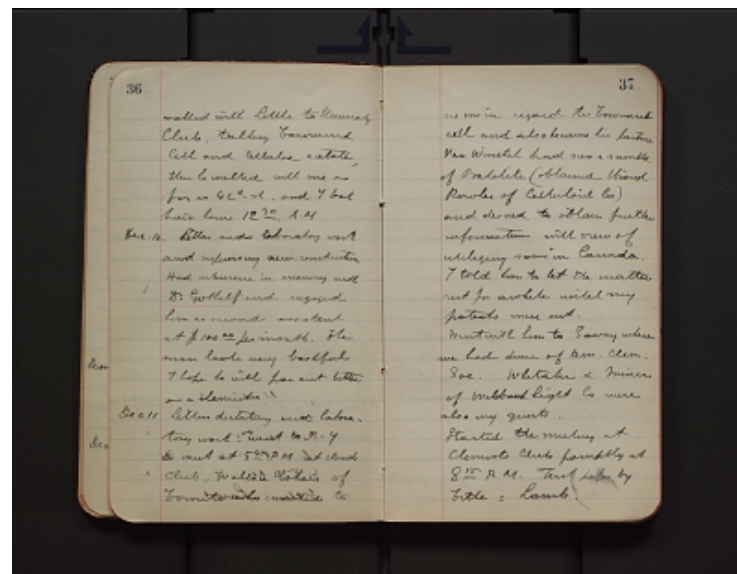 36
walked with Little to University
Club, talking Townsend
Cell and Cellulose acetate,
then he walked with me as
far as 62d st. and I took
train home 12 30 A.M
Dec. 10. Letters and laboratory work
and supervising new construction
Had interview in evening with
Dr. Gotthelf and engaged
him as second assistent
at $100 00 per month. The
man looks very bashful
I hope he will pan out better
as a chemist.
Dec 11 Letters dictating and labora-
tory work. went to N.Y
to meet at 5 P.M. at
Club,
Townsend to
37
me in regard the Townsend
cell and also because his
had seen a sample
of Bakelite (obtained
of Celluloid Co)
and desired to obtain further
information with view of
utilizing same in Canada.
I told him to let the matter
rest for awhile until my
patents were out.
Went with him to Savoy where
we had diner of Am. Chem.
Soc. Whitaker &
of Welsbach Light Co were
also my guests.
Started the meeting at
Chemists Club promptly at
8 15 P.M. by
Little &